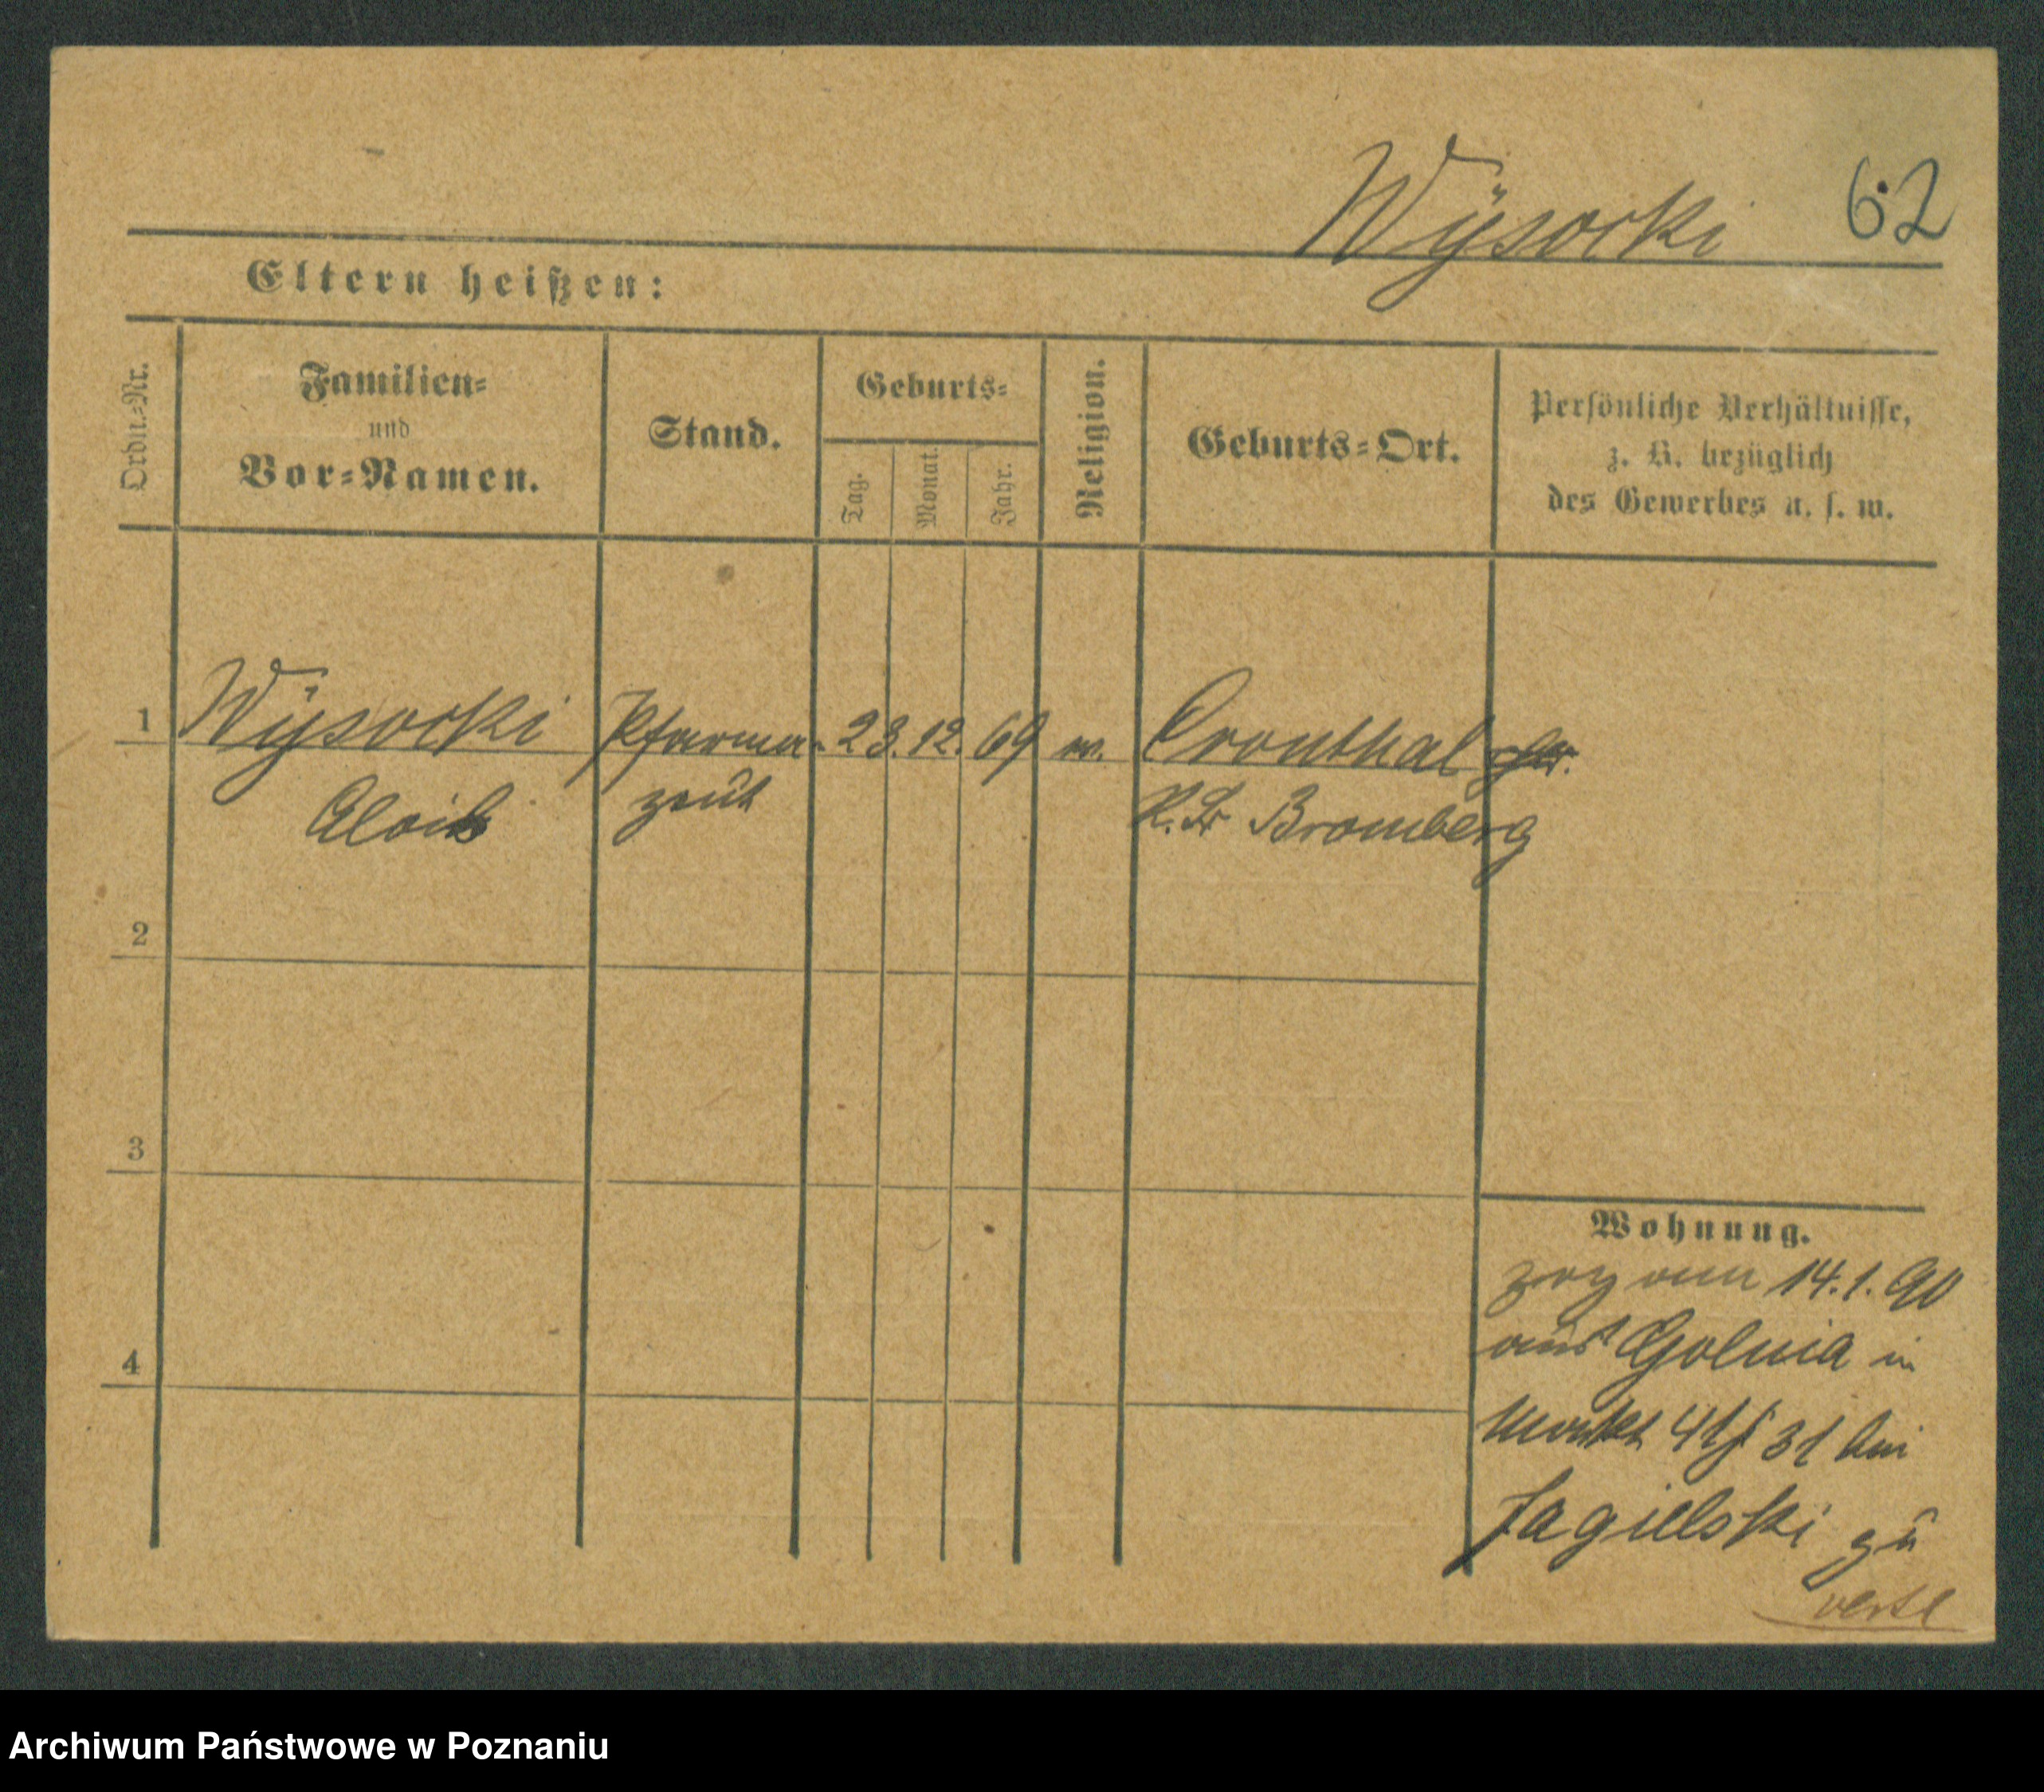 Wÿsocki 62
Eltern heißen:
Ordn.-Nr.
Familien-
und
Vor-Namen.
Stand.
Geburts-
Tag.
Monat.
Jahr.
Religion.
Geburts-Ort.
Persönliche Verhältnisse,
z. B. bezüglich
des Gewerbes u. s. w.
1 Wÿsocki Pharma- 23. 12. 69 Cronthal
Alois zeut Bromberg
2
3
4
Wohnung.
zog am 14.1.90
aus in
Markt 31 bei
Jagielski zu
verte
Archiwum Państwowe w Poznaniu